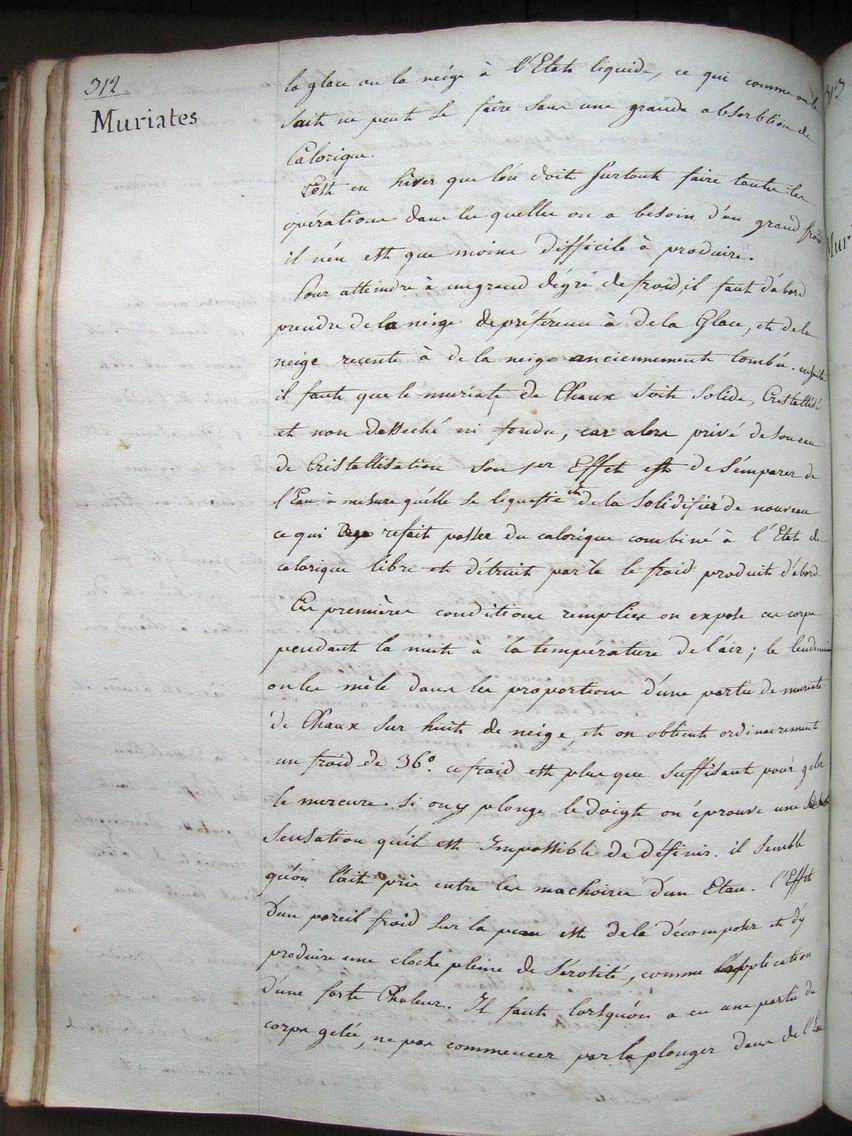 312
Muriates
la glace ou la neige à l'Etat liquide, ce qui comme on le
sait ne peut se faire sans une grande absorbtion de
Calorique.
C'est en hiver que l'on doit surtout faire toutes les
opérations dans les quelles on a besoin d'un grand froid
il n'en est que moins difficile à produire.
Pour atteindre à un grand dégré de froid, il faut d'abord
prendre de la neige de préférence à de la Glace, et de la
neige recente à de la neige anciennement tombée. ensuite
il faut que le muriate de Chaux soit solide, Cristallisé
et non desseché ni fondu, car alors privé de son eau
de Cristallisation son 1er Effet est de s'emparer de
l'Eau à mesure qu'elle se liquefie et de la solidifier de nouveau
ce qui refait passer du calorique combiné à l'Etat de
calorique libre et détruit par là le froid produit d'abord.
Ces premières conditions remplies on expose ces corps
pendant la nuit à la température de l'air; le lendemain
on les mêle dans les proportions d'une partie de muriate
de Chaux sur huit de neige et on obtient ordinairement
un froid de 36°. ce froid est plus que suffisant pour geler
le mercure. si on y plonge le doigt on éprouve une
sensation qu'il est Impossible de définir. il semble
qu'on l'ait pris entre les machoires d'un Etau. l'Effet
d'un pareil froid sur la peau est de la décomposer et d'y
produire une cloche pleine de sérosité, comme l'application
d'une forte Chaleur. Il faut lorsqu'on a eu une partie du
corps gelée, ne pas commencer par la plonger dans de l'Eau
313
Muri